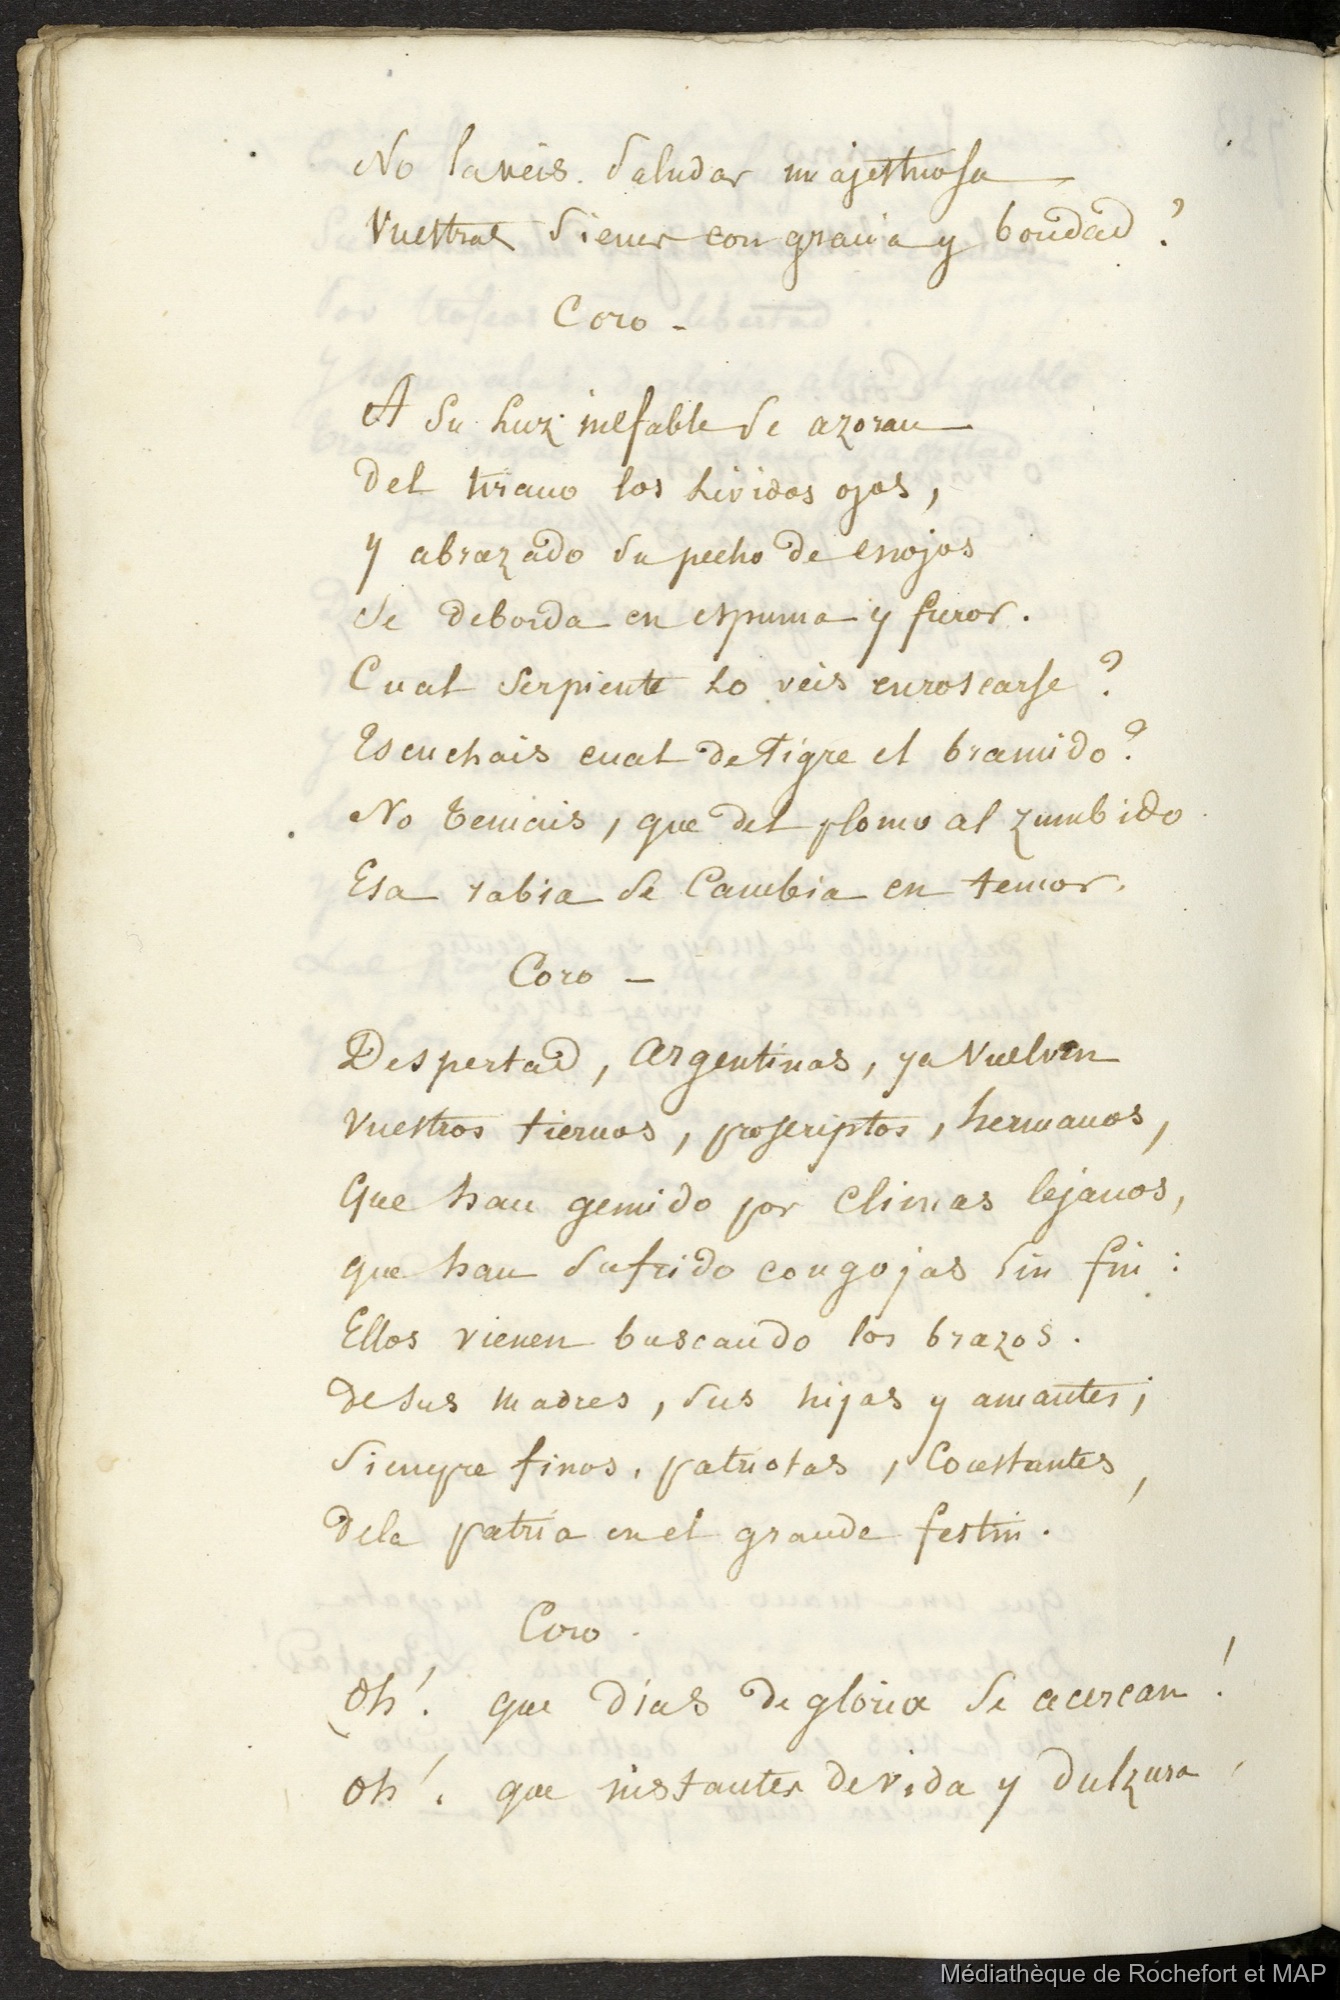 No la veis saludar majestuosa
Vuestras sienes con gracia y bondad?
Coro -
A su luz inefable se azoran
Del tirano los lividos ojos,
y abrazado su pecho de enojos
se deborda en espuma y furor.
Cual serpiente lo veis enroscarse?
Escuchais cual de tigre el bramido?
No temais, que del plomo al zumbido
Esa rabia se cambia en temor.
Coro -
Despertad, Argentinas, ya vuelven
Vuestros tiernos, proscriptos, hermanos,
Que han gemido por climas lejanos,
que han sufrido congojas sin fin:
Ellos vienen buscando los brazos.
De sus madres, sus hijas y amantes;
Siempre finos, patriotas, constantes,
De la patria en el grande festin.
Coro.
Oh! que dias de gloria se acercan!
Oh! que instantes de vida y dulzura
Médiathèque de Rochefort et MAP